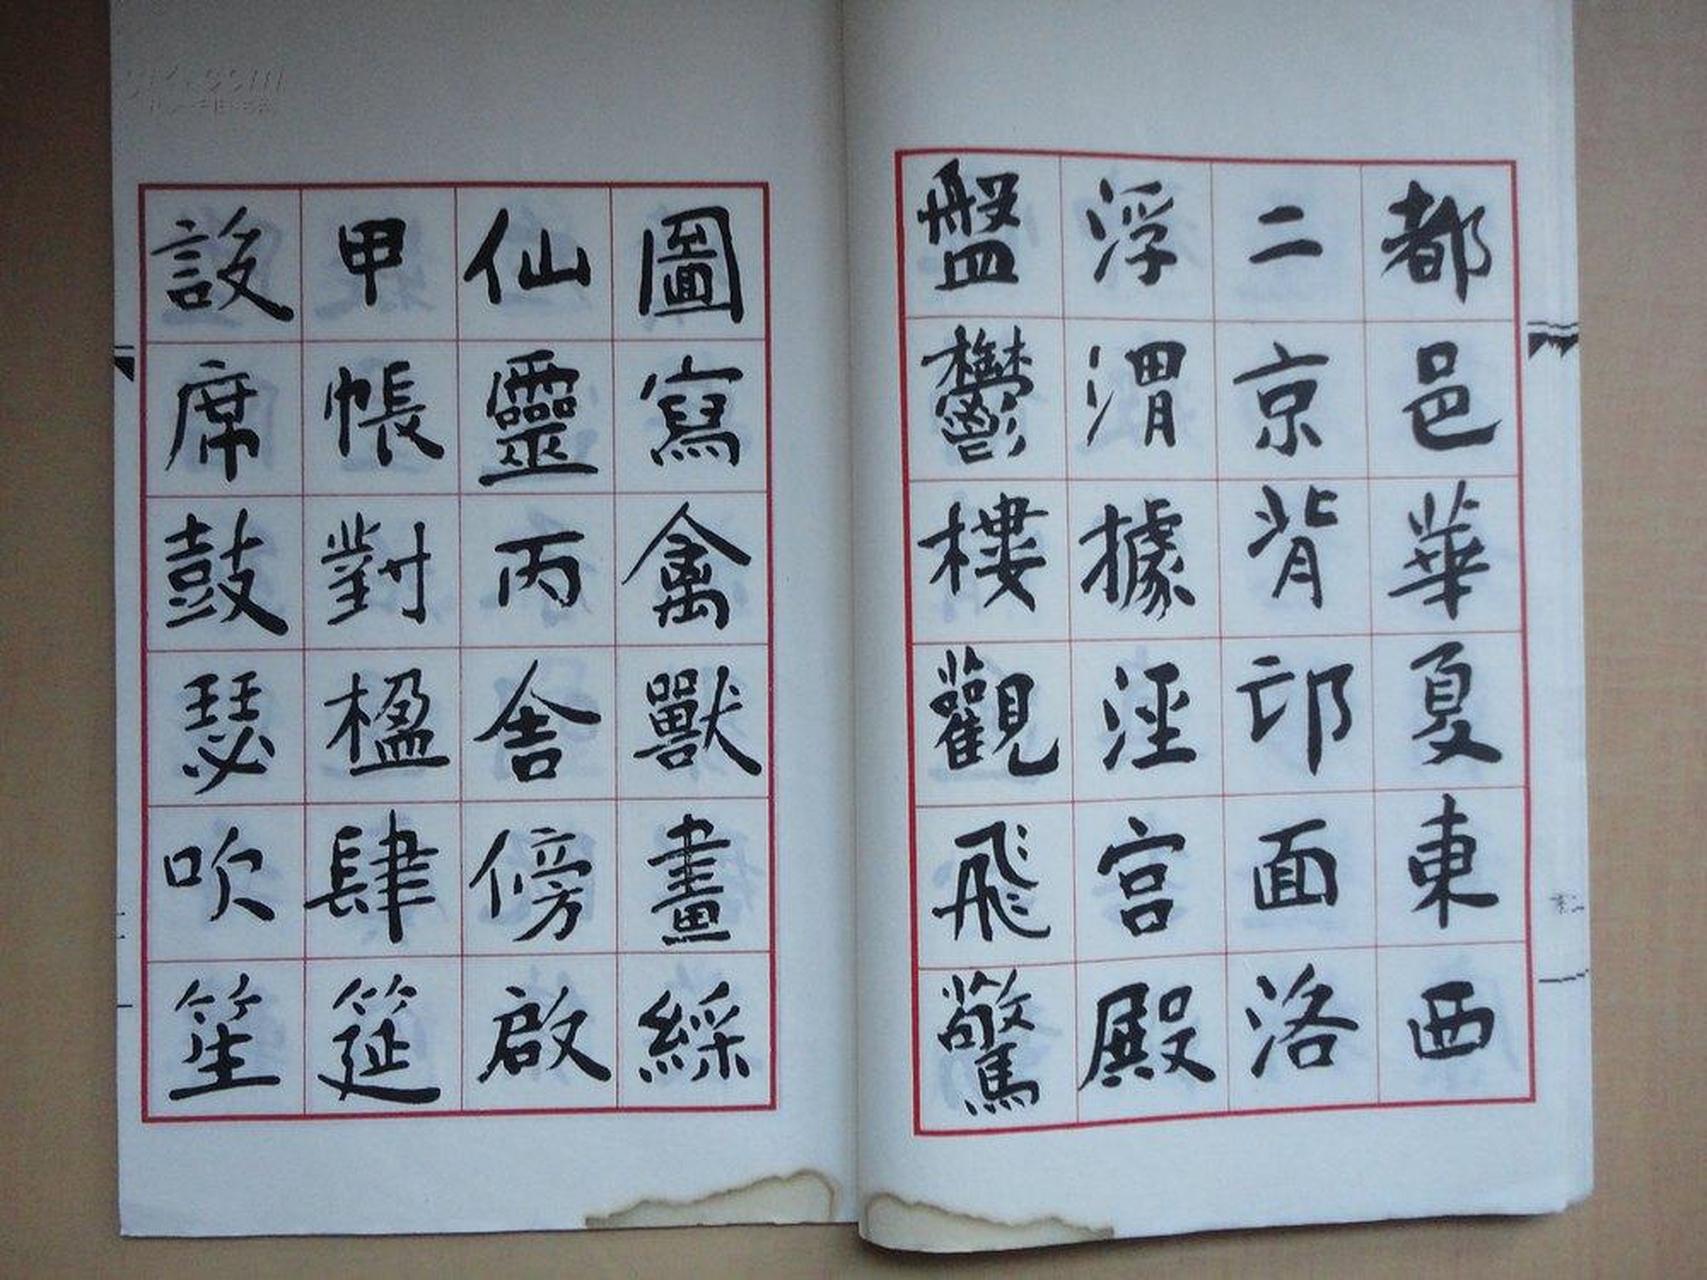 都邑華夏東西
二京背邙面洛
浮渭據涇宮殿
盤鬱樓觀飛驚
圖寫禽獸畫綵
仙靈丙舍傍啟
甲帳對楹肆筵
設席鼓瑟吹笙